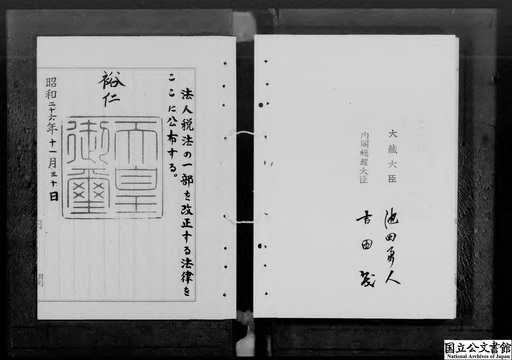 法人税法の一部を改正する法律を
ここに公布する。
裕仁
天皇
御璽
昭和二十六年十一月三十日
大蔵大臣
池田勇人
内閣総理大臣
吉田茂
国立公文書館
National Archives of Japan